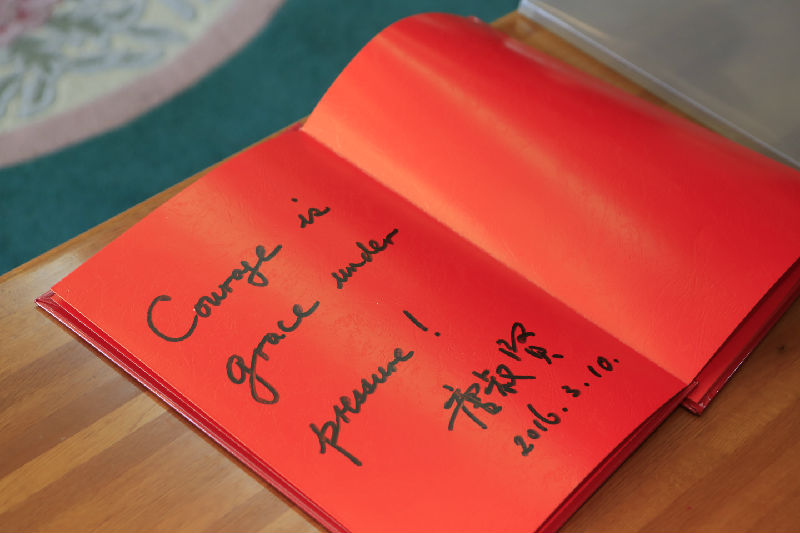 Courage is
grace under
pressure!
2016.3.10.